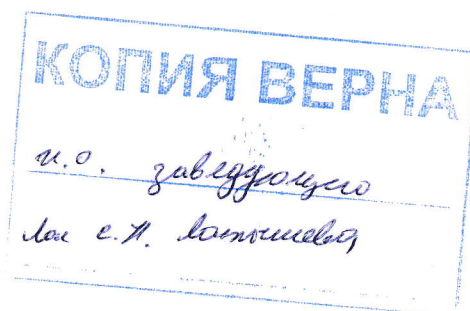 КОПИЯ ВЕРНА
и.о. заведующего
С.Н. Латышева